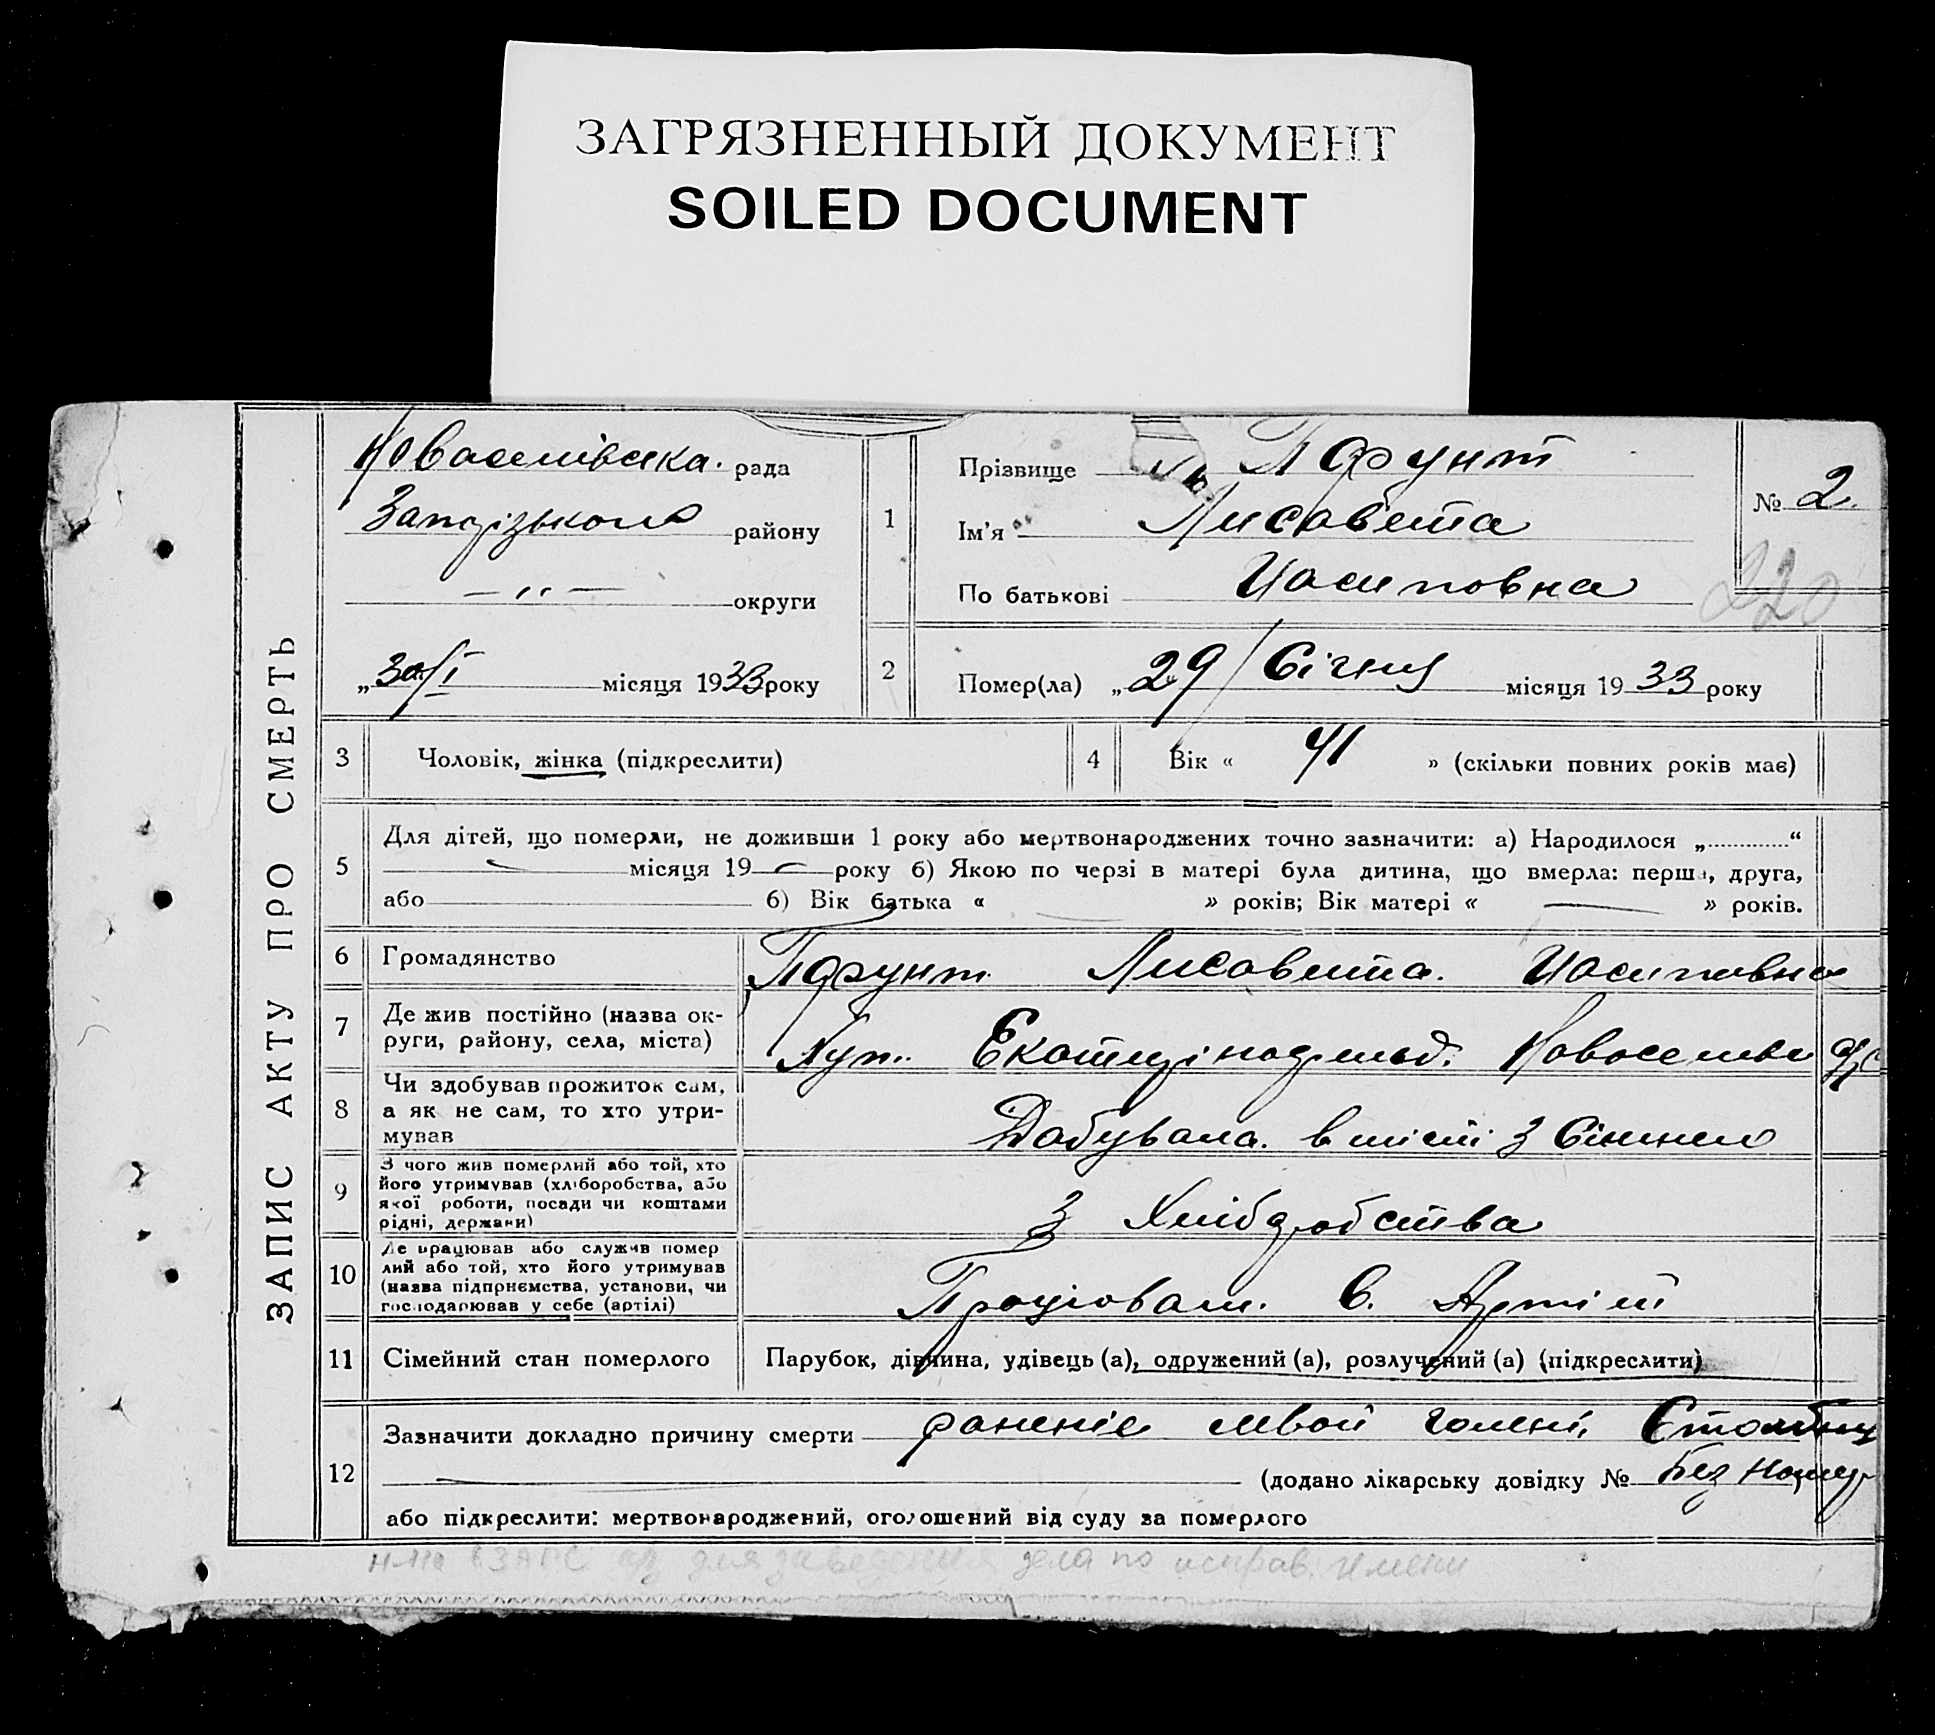 ЗАГРЯЗНЕННЫЙ ДОКУМЕНТ
SOILED DOCUMENT
ЗАПИС АКТУ ПРО СМЕРТЬ
Новоселівська. рада
Запорізького району
— ,, — округи
„30/I місяця 1933 року
1
Прізвище Пфунт
Ім'я Лисавета
По батькові Иосиповна
№ 2.
220
2
Помер(ла) „29/Січня місяця 1933 року
3 Чоловік, жінка (підкреслити)
4 Вік « 41 » (скільки повних років має)
5
Для дітей, що померли, не доживши 1 року або мертвонароджених точно зазначити: а) Народилося „ “
місяця 19 — року б) Якою по черзі в матері була дитина, що вмерла: перша, друга,
або б) Вік батька « » років; Вік матері « — » років.
6 Громадянство Пфунт. Лисавета. Иосиповна
7 Де жив постійно (назва ок-
руги, району, села, міста) Хут.
8 Чи здобував прожиток сам,
а як не сам, то хто утри-
мував Добувала. в місті з
9 З чого жив померлий або той, хто
його утримував (хліборобства, або
якої роботи, посади чи коштами
рідні, держави) З Хліборобства
10 Де працював або служив помер
лий або той, хто його утримував
(назва підприємства, установи, чи
господарював у себе (артілі) Працювал. в. Артілі
11 Сімейний стан померлого Парубок, дівчина, удівець (а), одружений (а), розлучений (а) (підкреслити)
12
Зазначити докладно причину смерти раненіе левой голені,
(додано лікарську довідку № Без номер)
або підкреслити: мертвонароджений, оголошений від суду за померлого
в ЗАГС для заведения дела по исправ. имени